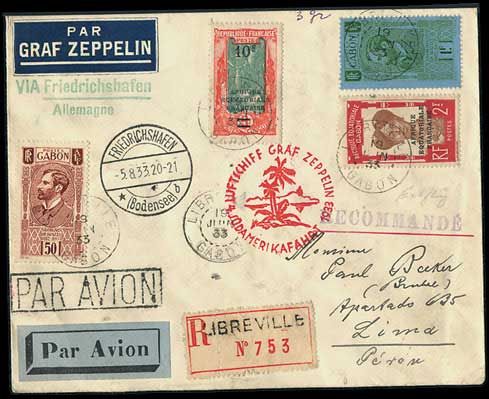 PAR
GRAF ZEPPELIN
3 gr
VIA Friedrichshafen
Allemagne
RÉPUBLIQUE FRANÇAISE
10c
AFRIQUE
ÉQUATORIALE
FRANÇAISE
GABON
AFRIQUE
ÉQUATORIALE
FRANÇAISE
GABON
RF 2F
POSTES
GABON
50c
FRIEDRICHSHAFEN
-5.8.33.20-21
(Bodensee) b
LIBREVILLE
19
JUIN
33
GABON
LUFTSCHIFF GRAF ZEPPELIN 1933
SÜDAMERIKAFAHRT
RECOMMANDÉ
Monsieur
Paul Becker
Apartado 635
Lima
Pérou
PAR AVION
Par Avion
R LIBREVILLE
No 753